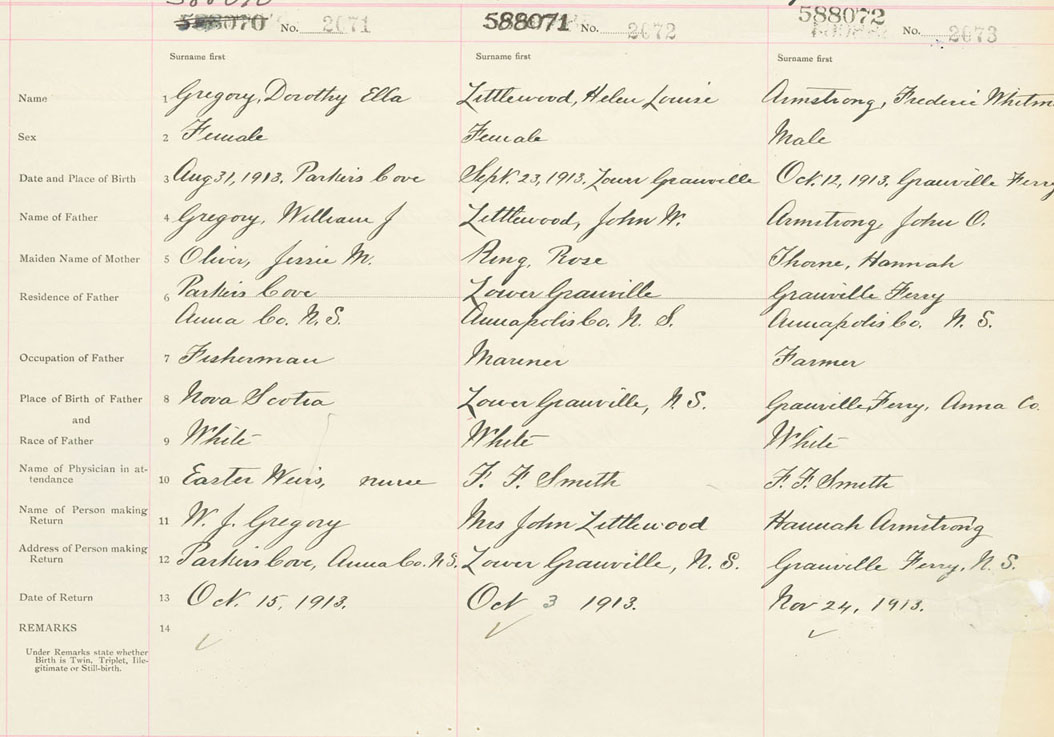 588070 No. 2071 588071 No. 2672 588072 No. 2673
Surname first Surname first Surname first
Name 1 Gregory, Dorothy Ella Littlewood, Helen Louise Armstrong, Frederic Whitm
Sex 2 Female Female Male
Date and Place of Birth 3 Aug 31, 1913. Parkers Cove Sept. 23, 1913. Lower Granville Oct. 12, 1913. Granville Ferry
Name of Father 4 Gregory, William J Littlewood, John W. Armstrong, John O.
Maiden Name of Mother 5 Oliver, Jessie M. Ring, Rose Thorne, Hannah
Residence of Father 6 Parkers Cove Lower Granville Granville Ferry
Anna Co. N.S. Annapolis Co. N. S. Annapolis Co. N. S.
Occupation of Father 7 Fisherman Mariner Farmer
Place of Birth of Father 8 Nova Scotia Lower Granville, N. S. Granville Ferry, Anna Co.
and
Race of Father 9 White White White
Name of Physician in at-
tendance 10 Easter Weirs, nurse F. F. Smith F. F. Smith
Name of Person making
Return 11 W. J. Gregory Mrs John Littlewood Hannah Armstrong
Address of Person making
Return 12 Parkers Cove, Anna Co. N.S. Lower Granville, N. S. Granville Ferry, N. S.
Date of Return 13 Oct. 15, 1913. Oct 3 1913. Nov 24, 1913.
REMARKS 14
Under Remarks state whether
Birth is Twin, Triplet, Ille-
gitimate or Still-birth.